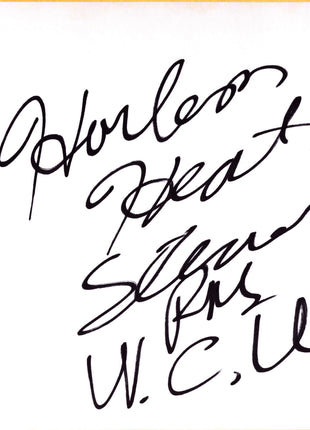 Harlem
Heat
Stevie
Ray
W.C.W